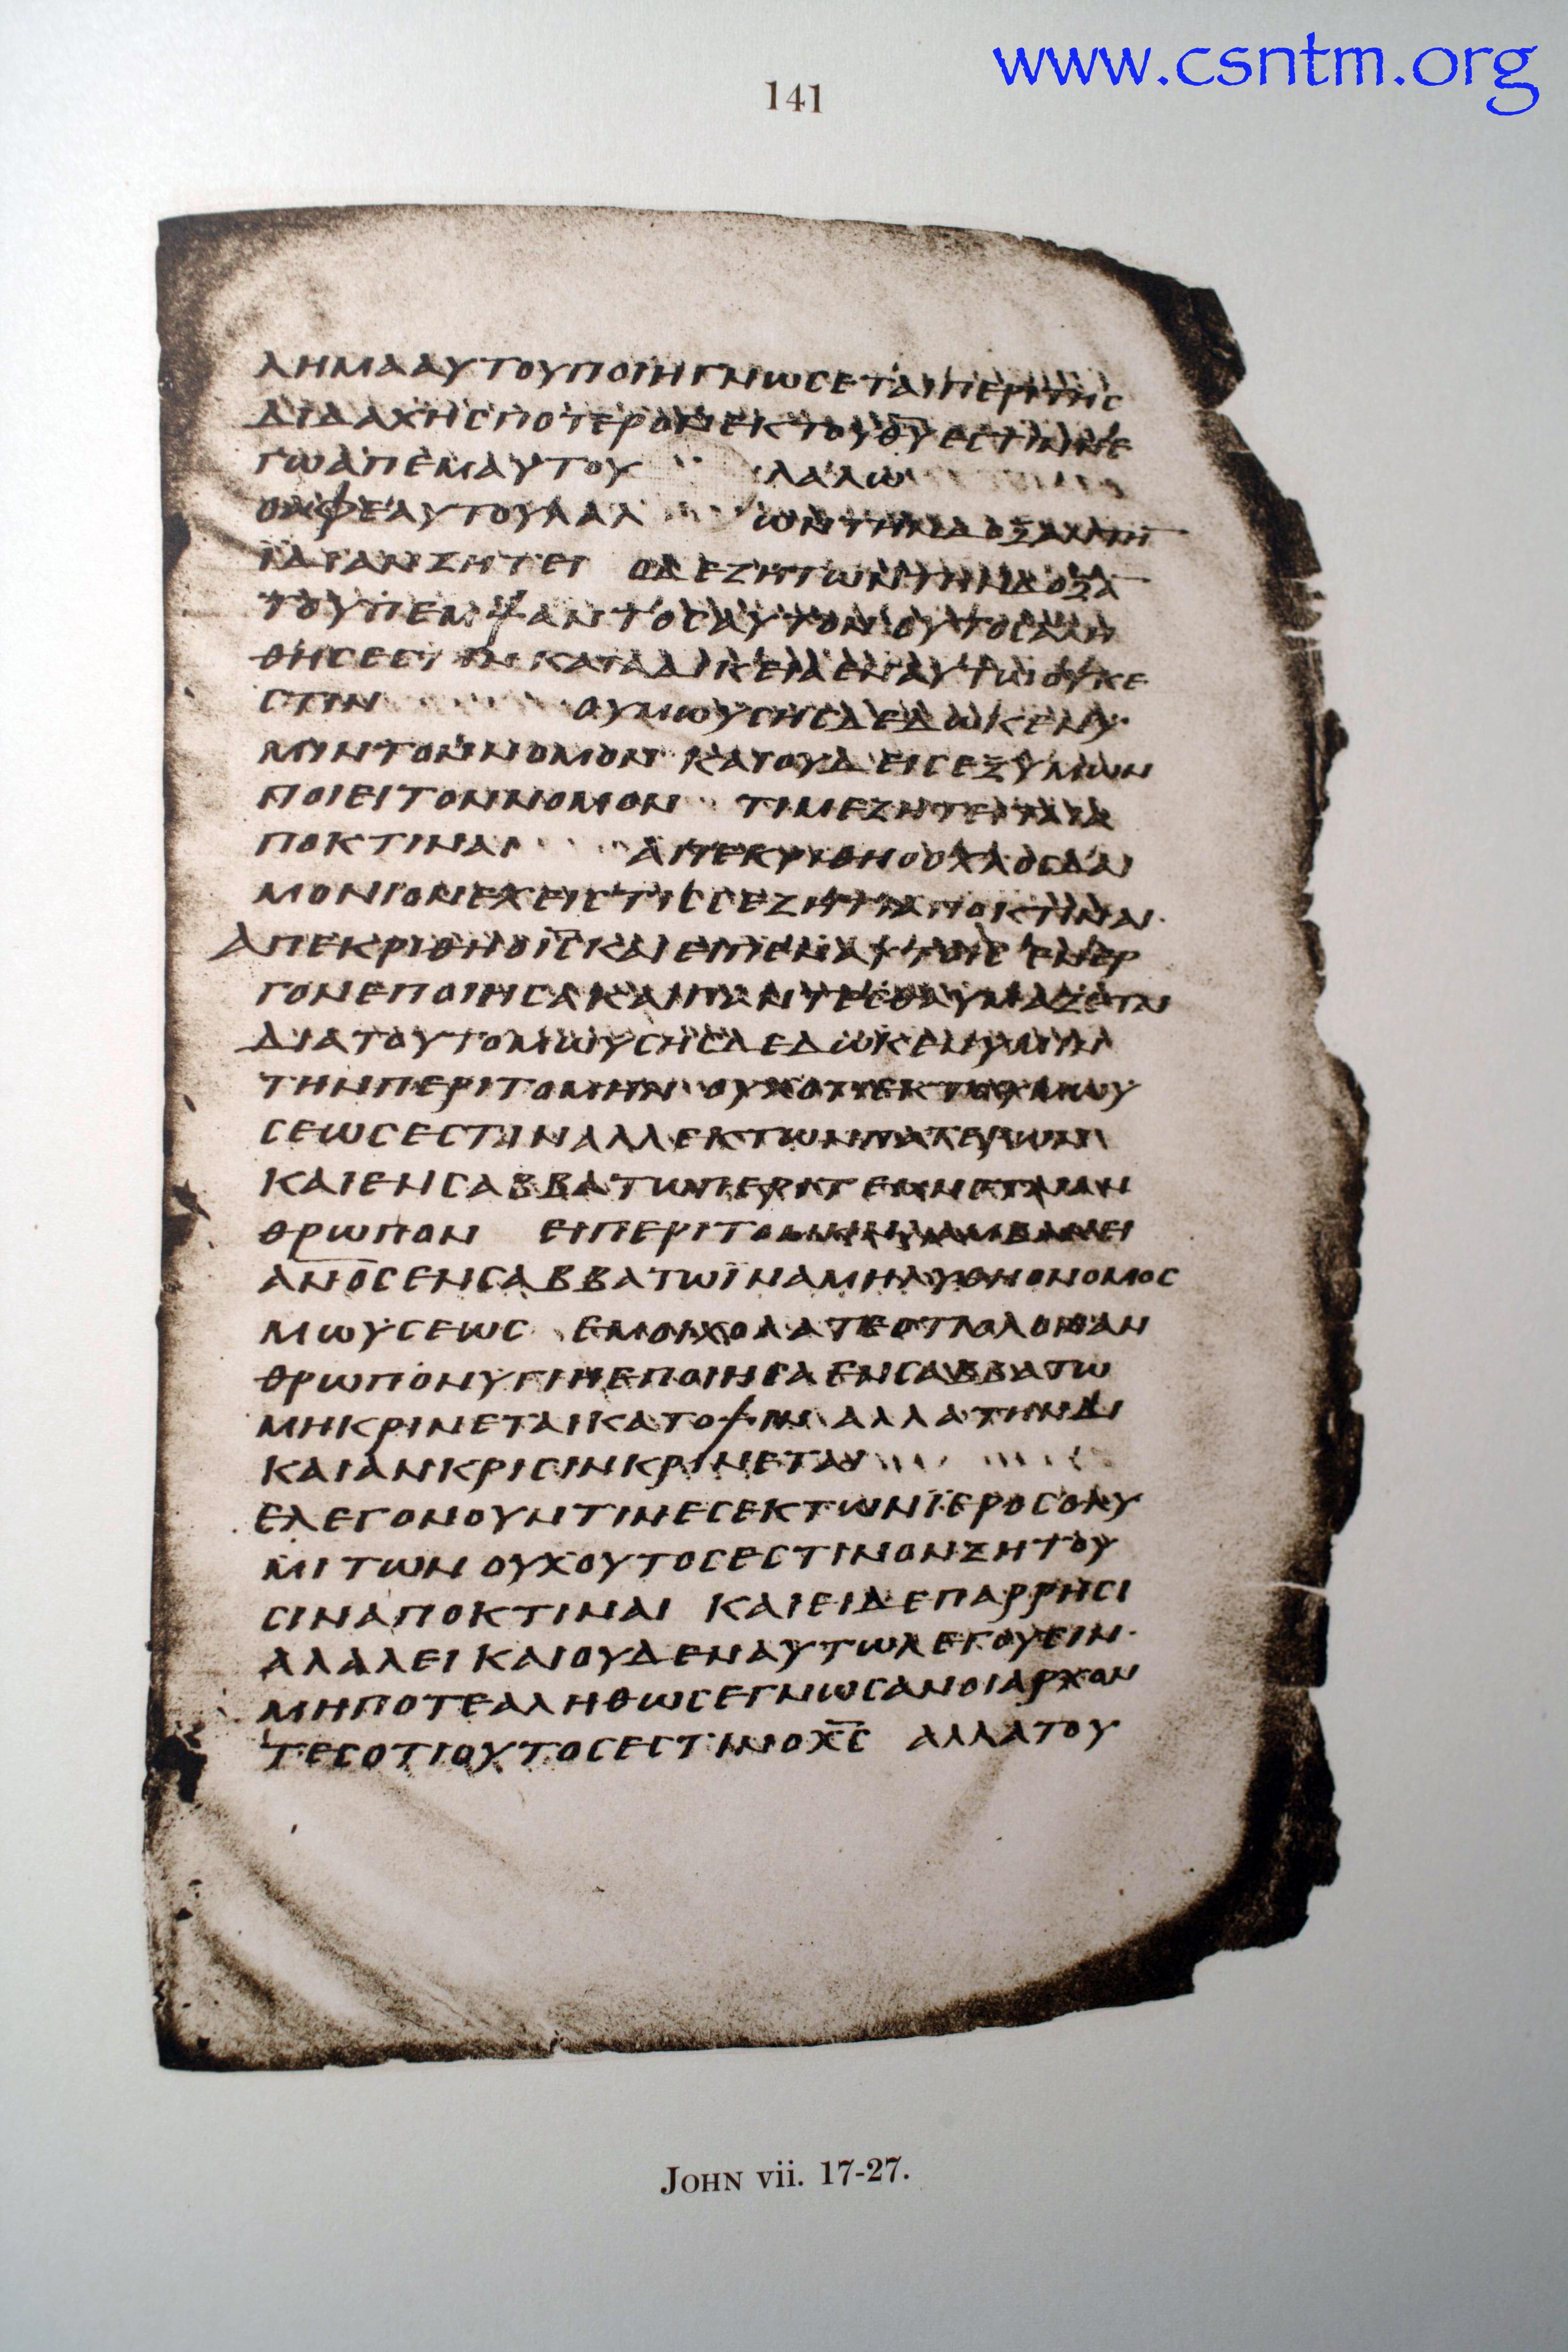 www.csntm.org
141
ΛΗΜΑΑΥΤΟΥΠΟΙΗΓΝΩСΕΤΑΙΠΕΡΙΤΗС
ΔΙΔΑΧΗСΠΟΤΕΡΟΝΕΚΤΟΥΘ̅Υ̅ΕСΤΙΝΗΕ
ΓΩΑΠΕΜΑΥΤΟΥ ΛΑΛΩ
ΟΑΦΕΑΥΤΟΥΛΑΛ ΩΝΤΗΝΔΟΞΑΝΤΗ
ΪΔΙΑΝΖΗΤΕΙ ΟΔΕΖΗΤΩΝΤΗΝΔΟΞΑ̅
ΤΟΥΠΕΜΨΑΝΤΟСΑΥΤΟΝΟΥΤΟСΑΛΗ
ΘΗСΕСΤΙΝΚΑΙΑΔΙΚΕΙΑΕΝΑΥΤΩΟΥΚΕ
СΤΙΝ ΟΥΜΩΥСΗСΔΕΔΩΚΕΝΥ
ΜΙΝΤΟΝΝΟΜΟΝ ΚΑΙΟΥΔΕΙСΕΞΥΜΩΝ
ΠΟΙΕΙΤΟΝΝΟΜΟΝ ΤΙΜΕΖΗΤΕΙΤΑΙΑ
ΠΟΚΤΙΝΑΙ ΑΠΕΚΡΙΘΗΟΟΧΛΟСΔΑΙ
ΜΟΝΙΟΝΕΧΕΙСΤΙССΕΖΗΤΙΑΠΟΚΤΙΝΑΙ
ΑΠΕΚΡΙΘΗΟΙ̅С̅ΚΑΙΕΙΠΕΝΑΥΤΟΙСΕΝΕΡ
ΓΟΝΕΠΟΙΗСΑΚΑΙΠΑΝΤΕСΘΑΥΜΑΖΕΤΑΙ
ΔΙΑΤΟΥΤΟΜΩΥСΗСΔΕΔΩΚΕΝΥΜΙΝ
ΤΗΝΠΕΡΙΤΟΜΗΝ ΟΥΧΟΤΙΕΚΤΟΥΜΩΥ
СΕΩСΕСΤΙΝΑΛΛΕΚΤΩΝΠΑΤΕΡΩΝ
ΚΑΙΕΝСΑΒΒΑΤΩΠΕΡΙΤΕΜΝΕΤΑΙΑΝ
ΘΡΩΠΟΝ ΕΙΠΕΡΙΤΟΜΗΝΛΑΜΒΑΝΕΙ
Α̅Ν̅Ο̅С̅ΕΝСΑΒΒΑΤΩΪΝΑΜΗΛΥΘΗΟΝΟΜΟС
ΜΩΥСΕΩС ΕΜΟΙΧΟΛΑΤΕΟΤΙΟΛΟΝΑΝ
ΘΡΩΠΟΝΥΓΙΗΕΠΟΙΗСΑΕΝСΑΒΒΑΤΩ
ΜΗΚΡΙΝΕΤΑΙΚΑΤΟΨΙΝ ΑΛΛΑΤΗΝΔΙ
ΚΑΙΑΝΚΡΙСΙΝΚΡΙΝΕΤΑΙ
ΕΛΕΓΟΝΟΥΝΤΙΝΕСΕΚΤΩΝΪΕΡΟСΟΛΥ
ΜΙΤΩΝ ΟΥΧΟΥΤΟСΕСΤΙΝΟΝΖΗΤΟΥ
СΙΝΑΠΟΚΤΙΝΑΙ ΚΑΙΕΙΔΕΠΑΡΡΗСΙ
ΑΛΑΛΕΙΚΑΙΟΥΔΕΝΑΥΤΩΛΕΓΟΥСΙΝ
ΜΗΠΟΤΕΑΛΗΘΩСΕΓΝΩСΑΝΟΙΑΡΧΟΝ
ΤΕСΟΤΙΟΥΤΟСΕСΤΙΝΟΧ̅С̅ ΑΛΛΑΤΟΥ
JOHN vii. 17-27.